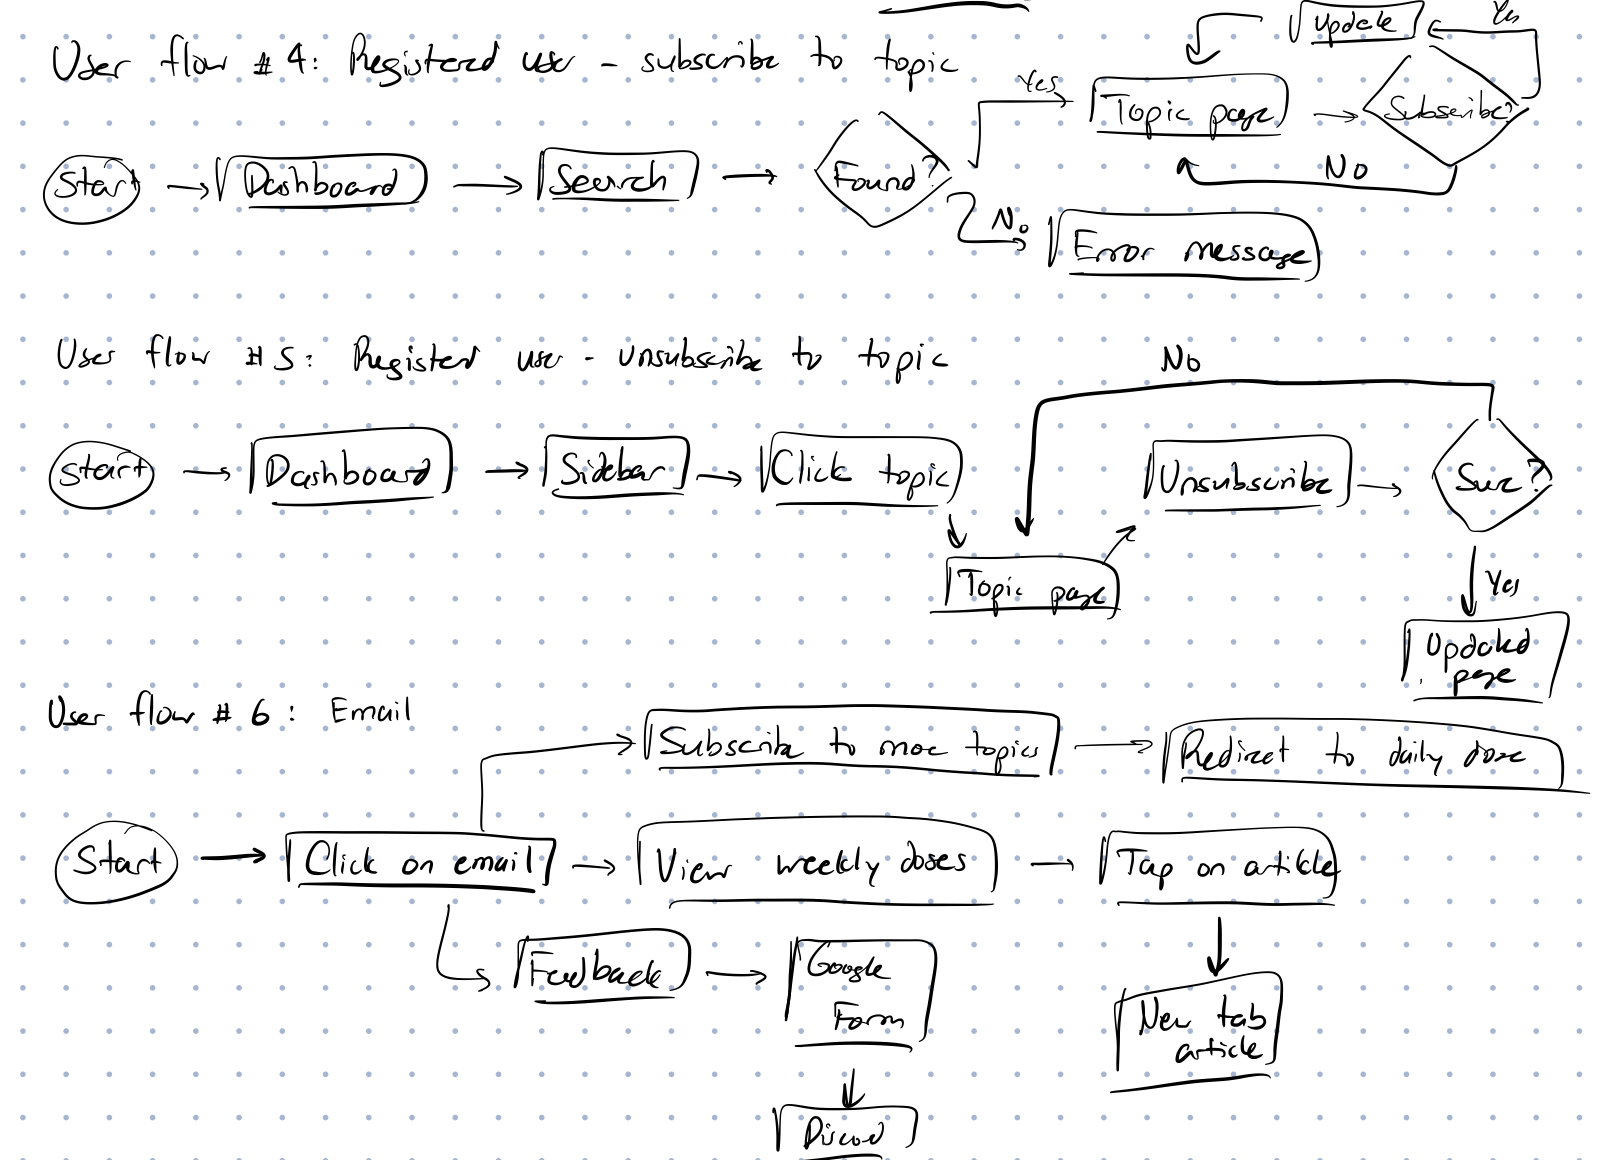 Update
Yes
User flow # 4: Registered user - subscribe to topic
Yes
Topic page
Subscribe?
Start
Dashboard
Search
Found?
No
No
Error message
User flow # 5: Registerd user - unsubscribe to topic
No
Start
Dashboard
Sidebar
Click topic
Unsubscribe
Sure?
Topic page
Yes
Updated
page
User flow # 6: Email
Subscribe to more topics
Redirect to daily dose
Start
Click on email
View weekly doses
Tap on article
Feedback
Google
Form
New tab
article
Discord